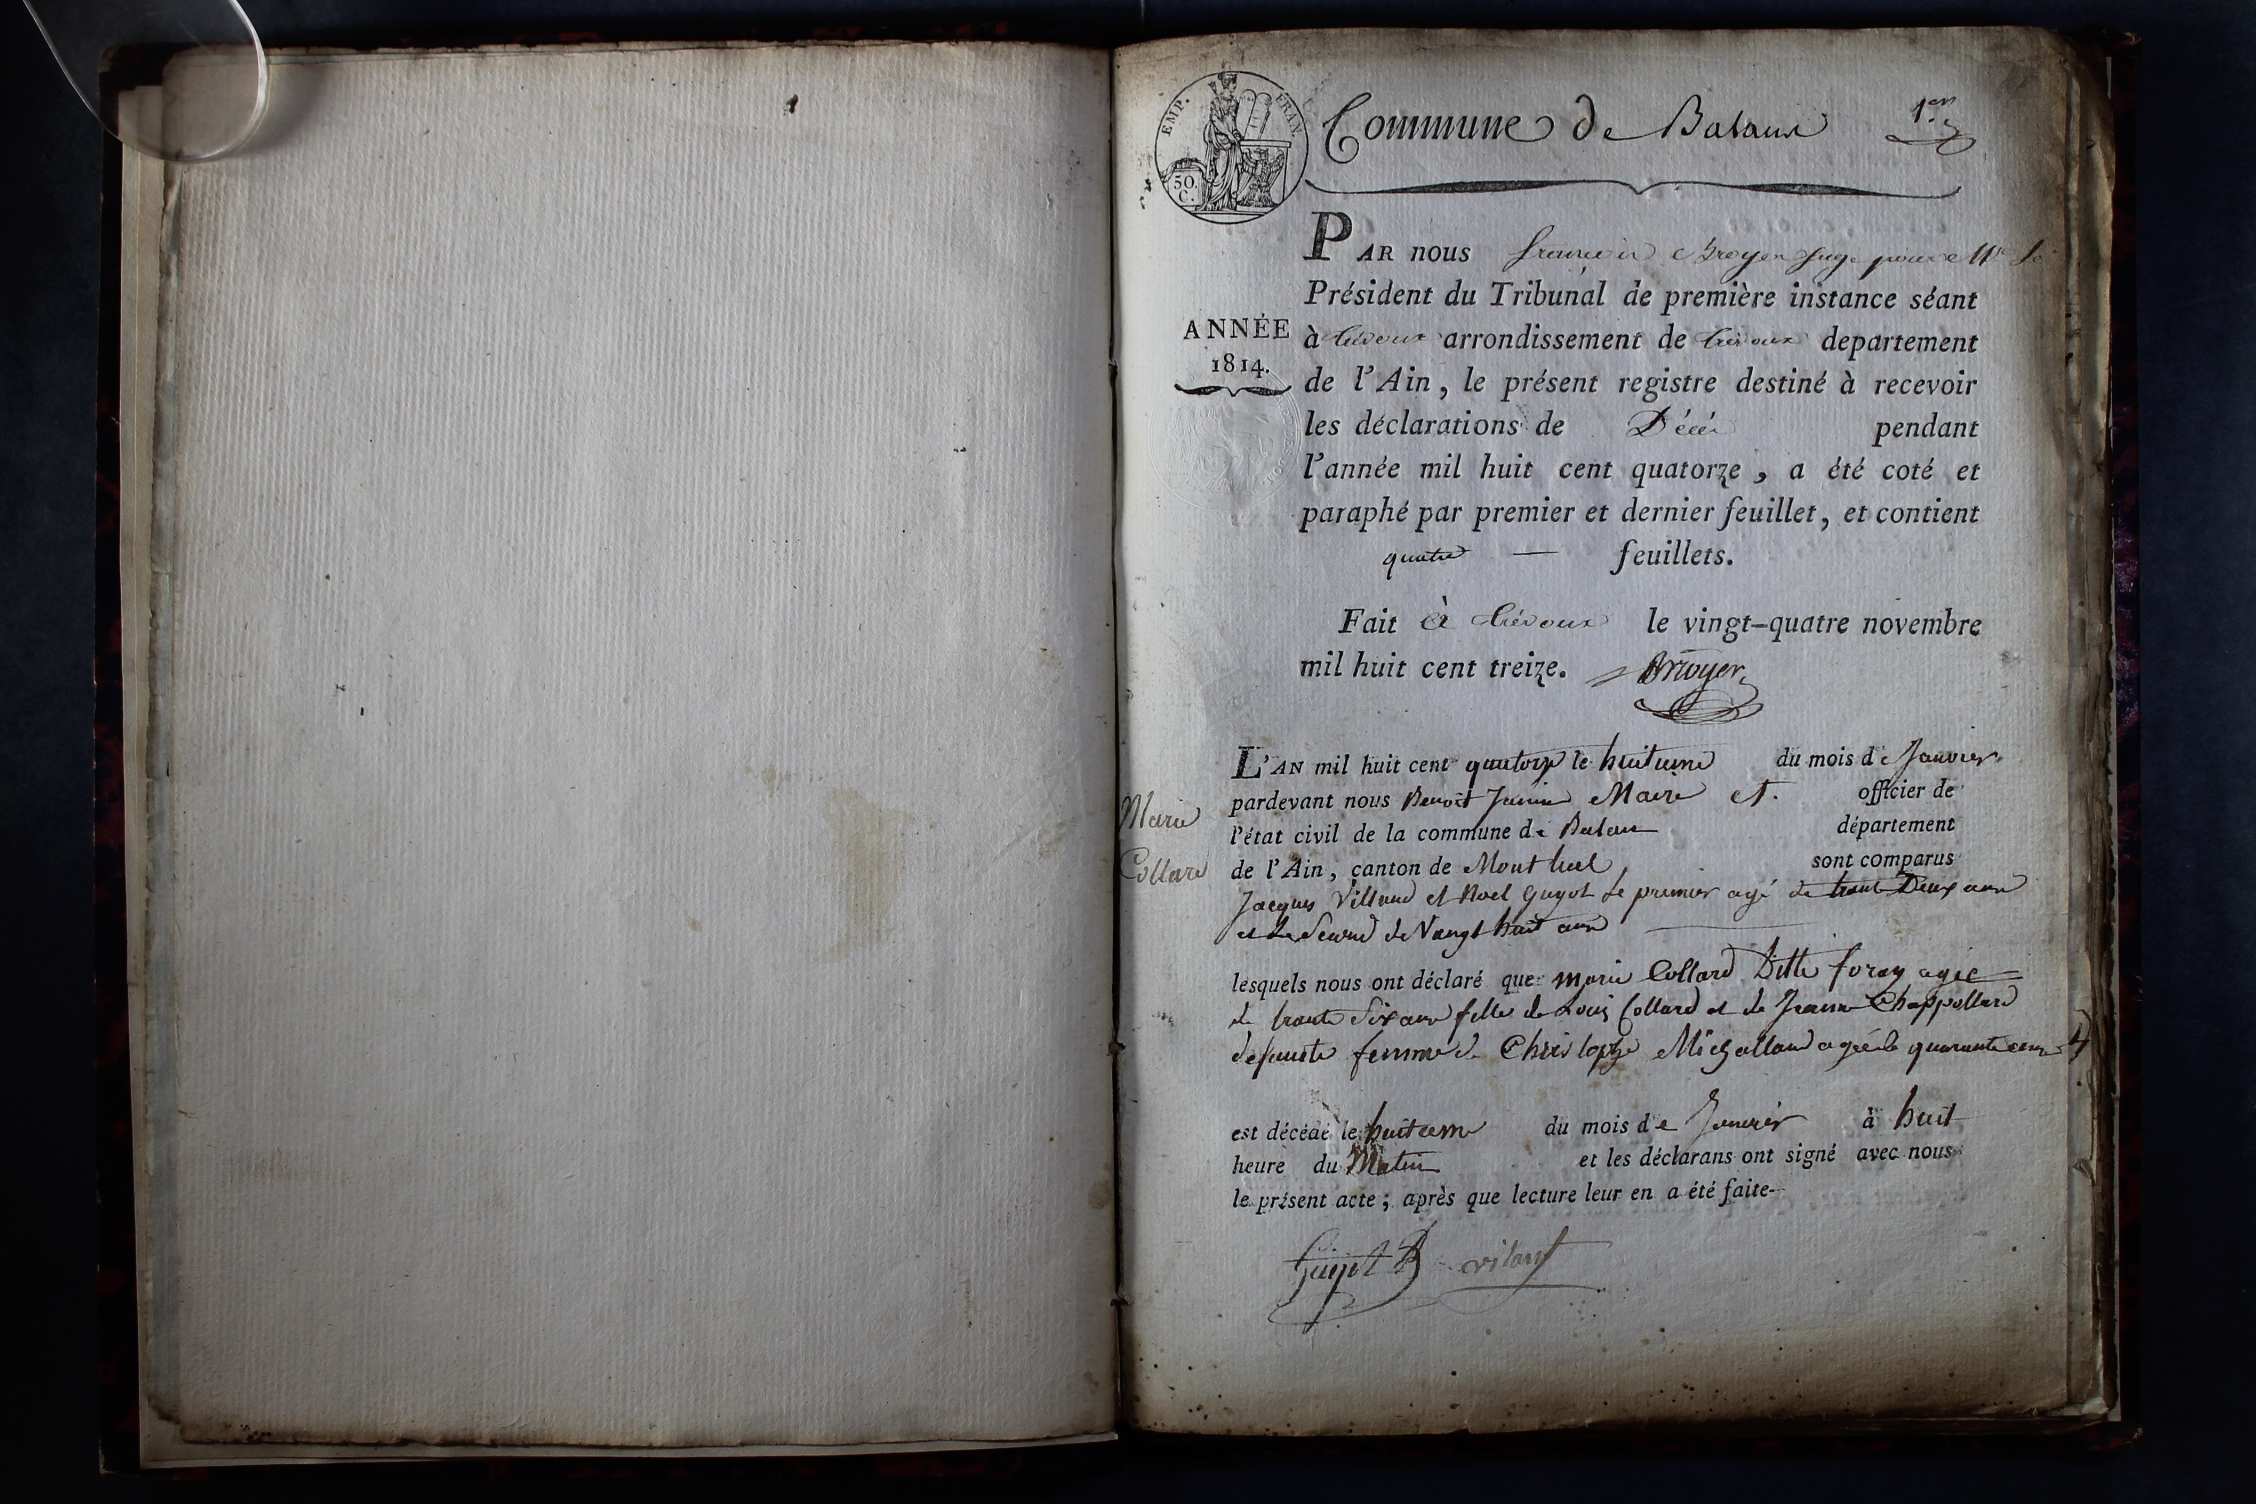 EMP. FRAN.
50.
C.
Commune de Balaur
1er
PAR nous francois Broyer Juge pour Mr Le
Président du Tribunal de première instance séant
ANNÉE
1814.
à trévoux arrondissement de trévoux departement
de l'Ain, le présent registre destiné à recevoir
les déclarations de Décés pendant
l'année mil huit cent quatorze, a été coté et
paraphé par premier et dernier feuillet, et contient
quatre — feuillets.
Fait à trévoux le vingt-quatre novembre
mil huit cent treize. Broyer
L'AN mil huit cent quatorze le huitieme du mois de Janvier
pardevant nous Benoit Maire et. officier de
l'état civil de la commune de Balan département
de l'Ain, canton de Montluel sont comparus
Marie
Collard
Jacques Villaud et Noel Guyot Le premier agé de trante Deux ans
et Le Second de Vangt huit ans
lesquels nous ont déclaré que marie Collard Ditte foray agée
de trante Six ans fille de Louis Collard et de Jeanne Chappollard
defunte femme de Christophe Michallaud agée de quarante ans
est décédé le huitieme du mois de Janvier à huit
heure du Matin et les déclarans ont signé avec nous
le présent acte ; après que lecture leur en a été faite-
Guyot vilaut